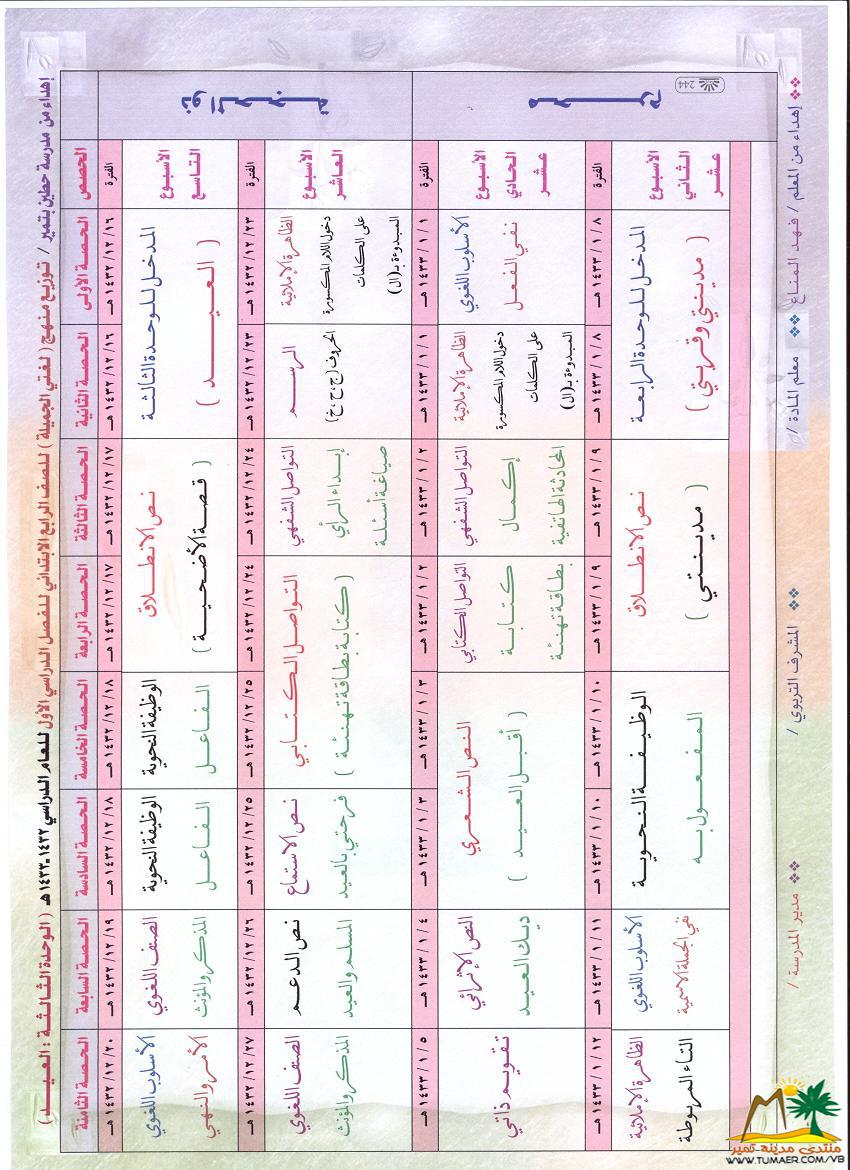 إهداء من مدرسة حطين بتمير / توزيع منهج ( لغتي الجميلة ) للصف الرابع الابتدائي للفصل الدراسي الأول للعام الدراسي ١٤٣٢-١٤٣٣هـ ( الوحدة الثالثة : العيـــد )
الحصص
الحصة الأولى
الحصة الثانية
الحصة الثالثة
الحصة الرابعة
الحصة الخامسة
الحصة السادسة
الحصة السابعة
الحصة الثامنة
ذو الحجة
الفترة
١٤٣٢/١٢/١٦ هـ
١٤٣٢/١٢/١٦ هـ
١٤٣٢/١٢/١٧ هـ
١٤٣٢/١٢/١٧ هـ
١٤٣٢/١٢/١٨ هـ
١٤٣٢/١٢/١٨ هـ
١٤٣٢/١٢/١٩ هـ
١٤٣٢/١٢/٢٠ هـ
الأسبوع
التاسع
المدخل للوحدة الثالثة
( العيـــد )
نص الانطلاق
( قصة الأضحية )
الوظيفة النحوية
الفاعل
الوظيفة النحوية
الفاعل
الصنف اللغوي
المذكر والمؤنث
الأسلوب اللغوي
الأمر والنهي
الفترة
١٤٣٢/١٢/٢٣ هـ
١٤٣٢/١٢/٢٣ هـ
١٤٣٢/١٢/٢٤ هـ
١٤٣٢/١٢/٢٤ هـ
١٤٣٢/١٢/٢٥ هـ
١٤٣٢/١٢/٢٥ هـ
١٤٣٢/١٢/٢٦ هـ
١٤٣٢/١٢/٢٧ هـ
الأسبوع
العاشر
الظاهرة الإملائية
دخول اللام المكسورة
على الكلمات
المبدوءة بـ(ال)
الرسم
الحروف (ج،ح،خ)
التواصل الشفهي
إبداء الرأي
صياغة أسئلة
التواصل الكتابي
( كتابة بطاقة تهنئة )
نص الاستماع
فرحتي بالعيد
نص الدعم
المسلم والعيد
الصنف اللغوي
المذكر والمؤنث
محرم
244
الفترة
١٤٣٣/١/١ هـ
١٤٣٣/١/١ هـ
١٤٣٣/١/٢ هـ
١٤٣٣/١/٢ هـ
١٤٣٣/١/٣ هـ
١٤٣٣/١/٣ هـ
١٤٣٣/١/٤ هـ
١٤٣٣/١/٥ هـ
الأسبوع
الحادي
عشر
الأسلوب اللغوي
نفي الفعل
الظاهرة الإملائية
دخول اللام المكسورة
على الكلمات
المبدوءة بـ(ال)
التواصل الشفهي
إكمال
المحادثة الهاتفية
التواصل الكتابي
كتابة
بطاقة تهنئة
النص الشعري
( أقبل العيد )
النص الإثرائي
ديك العيد
تقويم ذاتي
الفترة
١٤٣٣/١/٨ هـ
١٤٣٣/١/٨ هـ
١٤٣٣/١/٩ هـ
١٤٣٣/١/٩ هـ
١٤٣٣/١/١٠ هـ
١٤٣٣/١/١٠ هـ
١٤٣٣/١/١١ هـ
١٤٣٣/١/١٢ هـ
الأسبوع
الثاني
عشر
المدخل للوحدة الرابعة
( مدينتي وقريتي )
نص الانطلاق
( مدينتي )
الوظيفة النحوية
المفعول به
الأسلوب اللغوي
نفي الجملة الاسمية
الظاهرة الإملائية
التاء المربوطة
إهداء من المعلم / فهد المناع
معلم المادة /
المشرف التربوي /
مدير المدرسة /
منتدى مدينة تمير
WWW.TUMAER.COM/VB